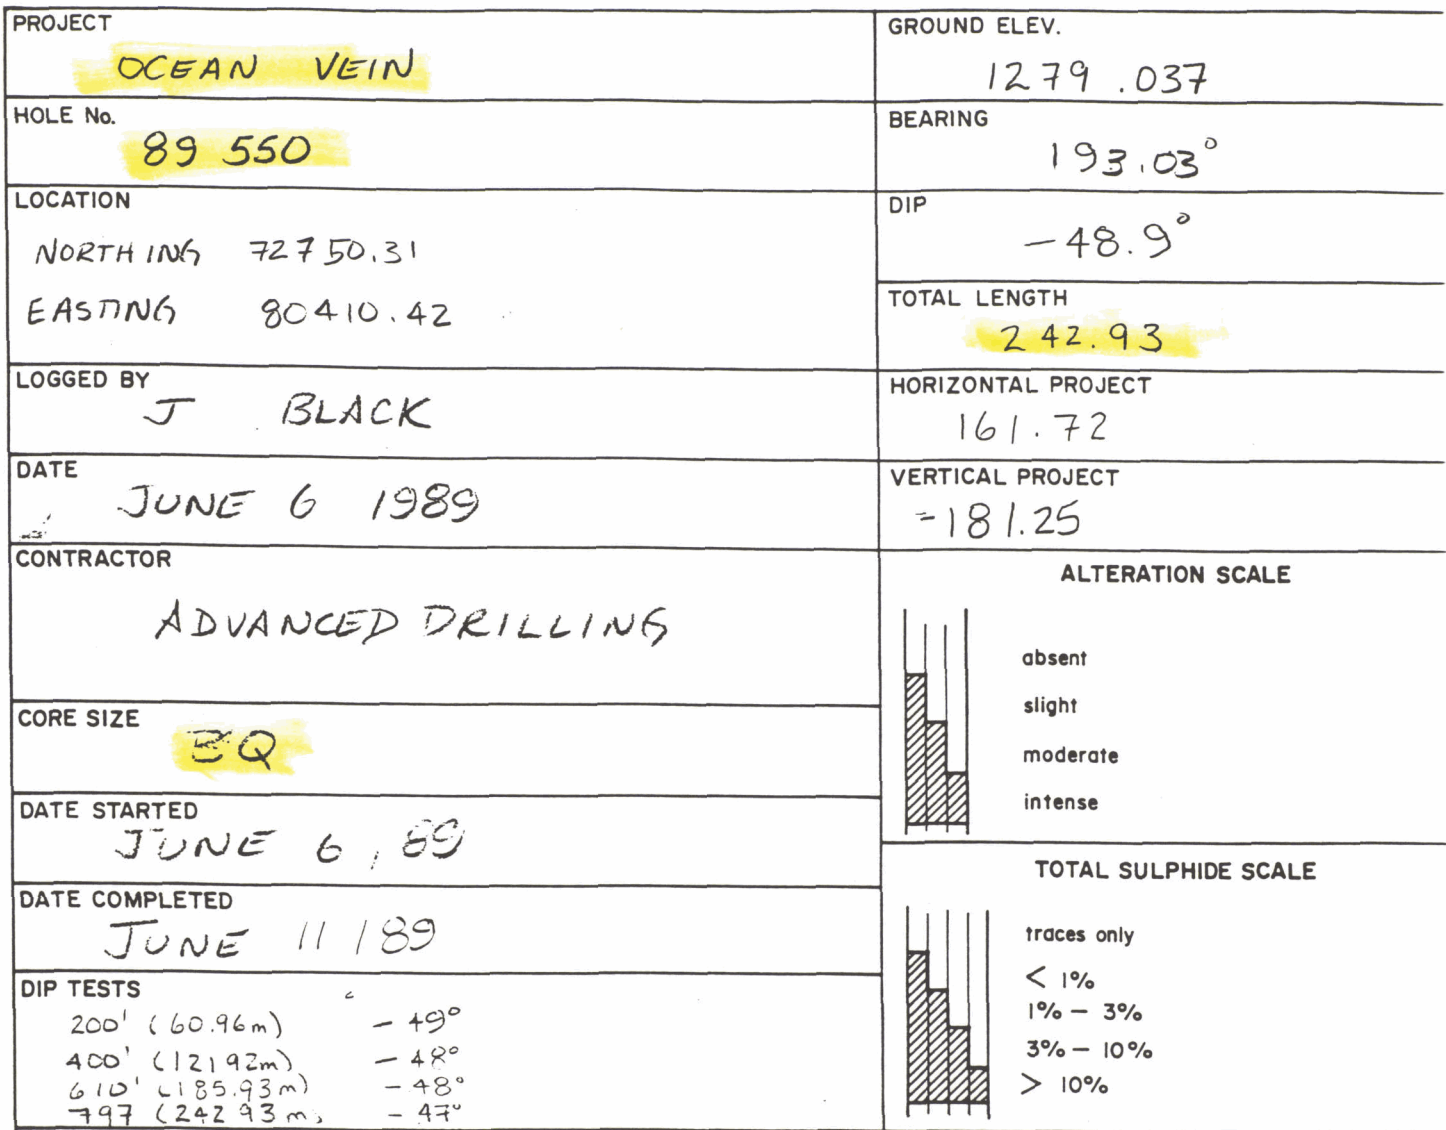 PROJECT
OCEAN VEIN
HOLE No.
89 550
LOCATION
NORTHING 72750.31
EASTING 80410.42
LOGGED BY
J BLACK
DATE
JUNE 6 1989
CONTRACTOR
ADVANCED DRILLING
CORE SIZE
BQ
DATE STARTED
JUNE 6, 89
DATE COMPLETED
JUNE 11 / 89
DIP TESTS
200' (60.96m) - 49°
400' (121 92m) - 48°
610' (185.93m) - 48°
797 (242 93 m, - 47°
GROUND ELEV.
1279.037
BEARING
193.03°
DIP
-48.9°
TOTAL LENGTH
242.93
HORIZONTAL PROJECT
161.72
VERTICAL PROJECT
-181.25
ALTERATION SCALE
absent
slight
moderate
intense
TOTAL SULPHIDE SCALE
traces only
< 1%
1% - 3%
3% - 10%
> 10%